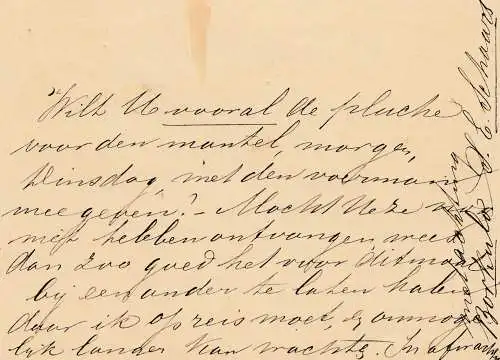 Wilt U vooral de pluche
voor den mantel, morgen,
Dinsdag, met den voerman
meegeven? - Mocht U ze n
niet hebben ontvangen wees
dan zoo goed het voor ditmaal
bij een ander te laten halen
daar ik op reis moet, & onmoge
lijk langer kan wachten. In afwacht
Hoogachtend
S. E. Schaars